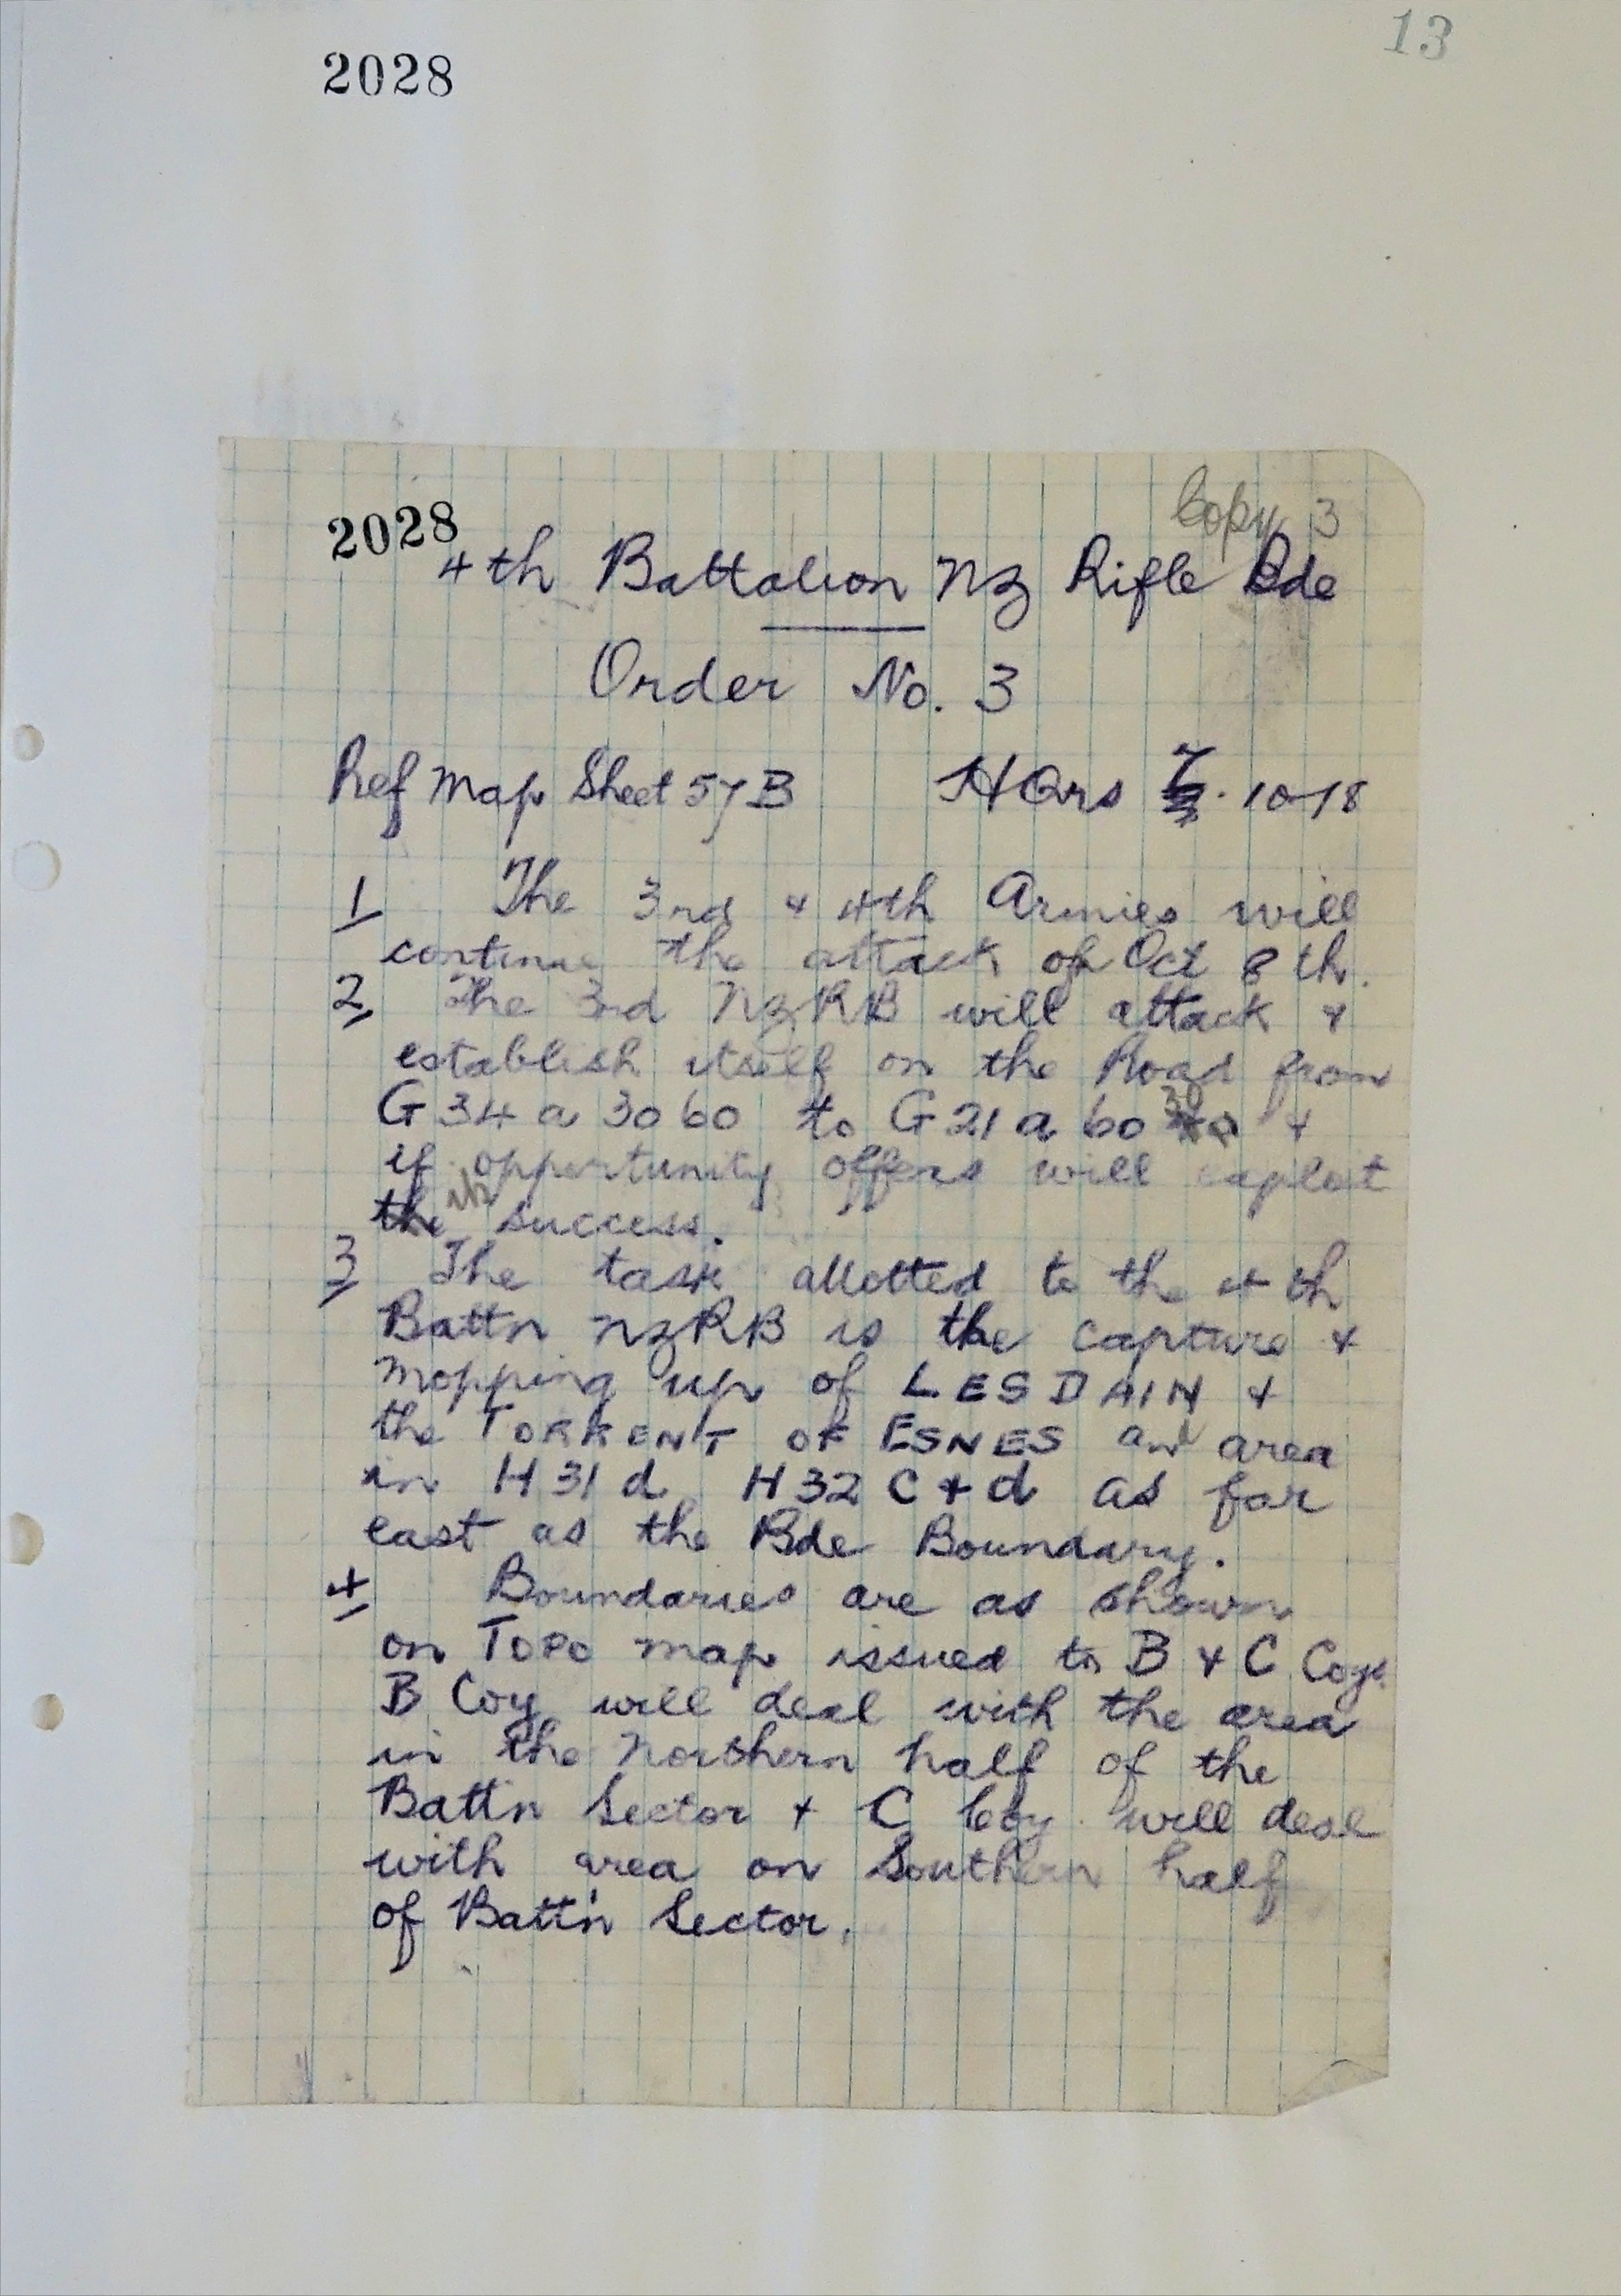 13
2028
Copy 3
2028
4th Battalion NZ Rifle Bde
Order No. 3
Ref Map Sheet 57B HQrs 7.10-18
1 The 3rd & 4th Armies will
continue the attack on Oct 8th.
2 The 3rd NZRB will attack &
establish itself on the Road from
G 34 a 30 60 to G 21 a 60 30 &
if opportunity offers will exploit
the its success.
3 The task allotted to the 4th
Battn NZRB is the capture &
mopping up of LESDAIN &
the TORRENT OF ESNES and area
in H 31 d H 32 C & d as far
east as the Bde Boundary.
4 Boundaries are as shown
on TOPO map issued to B & C Coys.
B Coy will deal with the area
in the Northern half of the
Battn Sector & C Coy will deal
with area on Southern half
of Batt'n Sector.